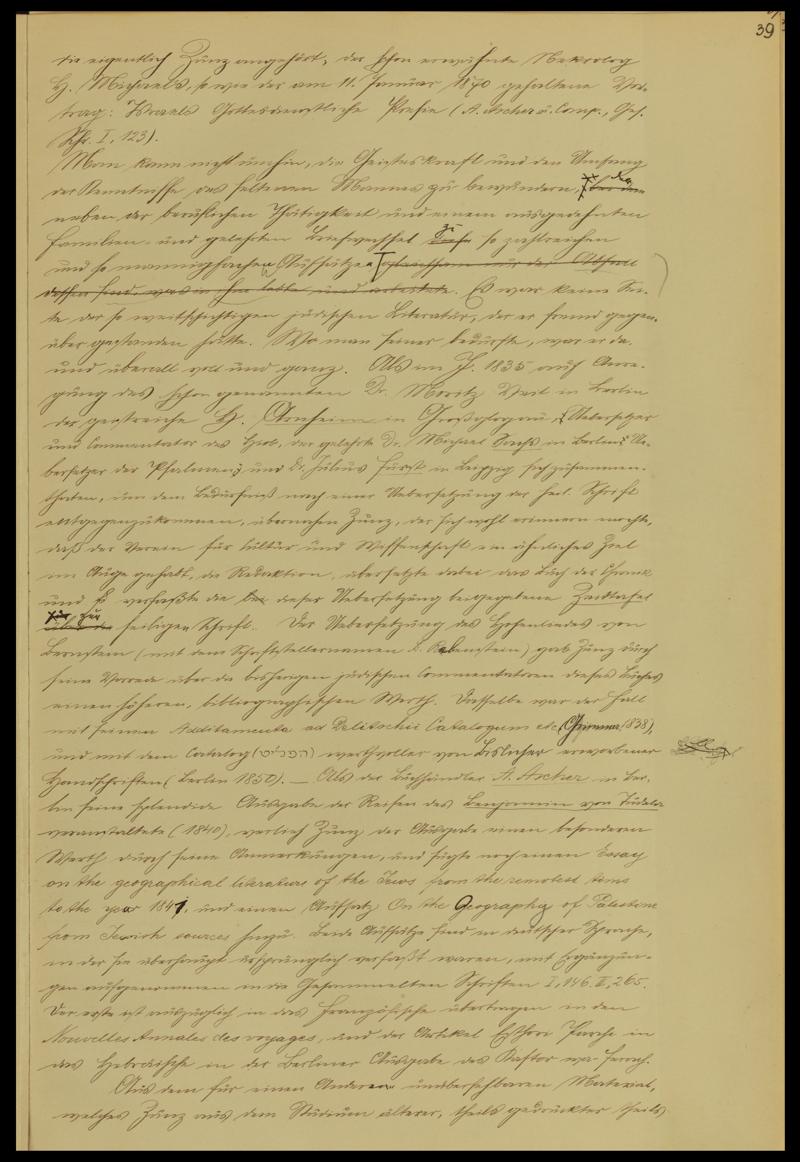 39
die eigentlich Zunz angehört, der schon erwähnte Nekrolog
H. Michaels, so wie der am 11. Januar 1870 gehaltene Vor-
trag: Israels Gottesdienstliche Poesie (A. Ascher u. Comp., Ges.
Schr. I, 123).
Man kann nicht umhin, die Geisteskraft und den Umfang
der Kenntnisse des seltenen Mannes zu bewundern,
neben der beruflichen Thätigkeit und einem ausgedehnten
Familien- und gelehrten Briefwechsel zu so zahlreichen
und so mannigfachen Aufsätzen gleichsam nur der Abfall
dessen sind, was in ihm lebte und arbeitete. Es war keine Sei-
te der so weitschichtigen jüdischen Literatur, der er fremd gegen-
über gestanden hätte. Wo man seiner bedurfte, war er da.
und überall voll und ganz. Als im J. 1835 auf Anre-
gung des schon genannten Dr. Moritz Veit in Berlin
der geistreiche H. Arnheim in Großglogau, Uebersetzer
und Commentator des Hiob, der gelehrte Dr. Michael Sachs in Berlin, Ue-
bersetzer der Psalmen, und Dr. Julius Fürst in Leipzig sich zusammen-
thaten, um dem Bedürfniß nach einer Uebersetzung der heil. Schrift
entgegenzukommen, übernahm Zunz, der sich wohl erinnern mochte,
daß der Verein für Cultur und Wissenschaft ein ähnliches Ziel
im Auge gehabt, die Redaktion, übersetzte dabei das Buch der Chronik
und verfaßte die dieser Uebersetzung beigegebene Zeittafel
zur heiligen Schrift. Der Uebersetzung des Hohenliedes von
Bernstein (mit dem Schriftstellernamen A. Rebenstein) gab Zunz durch
seine Vorrede über die bisherigen jüdischen Commentatoren dieses Buches
einen höheren, bibliographischen Werth. Dasselbe war der Fall
mit seinen Additamenta ad Delitschii Catalogum etc. (Grimma 1838),
und mit dem Catalog (הפליט) werthvoller von Bislicher erworbener
Handschriften (Berlin 1850). — Als der Buchhändler A. Ascher in Ber-
lin seine splendide Ausgabe der Reisen des Benjamin von Tudela
veranstaltete (1840), verlieh Zunz der Ausgabe einen besonderen
Werth durch seine Anmerkungen, und fügte noch einen Essay
on the geographical literature of the Jews from the remotest times
to the year 1841, und einen Aufsatz On the Geography of Palestine
from Jewish sources hinzu. Beide Aufsätze sind in deutscher Sprache,
in der sie überhaupt ursprünglich verfaßt waren, mit Ergänzun-
gen aufgenommen in die Gesammelten Schriften I, 146. II, 265.
Der erste ist auszüglich in das Französische übertragen in den
Nouvelles Annales des voyages, und der Artikel Esthori Parchi in
das Hebräische in der Berliner Ausgabe des Kaftor wa-ferach.
Aus dem für einen Anderen unübersehbaren Material,
welches Zunz aus dem Studium älterer, theils gedruckter theils